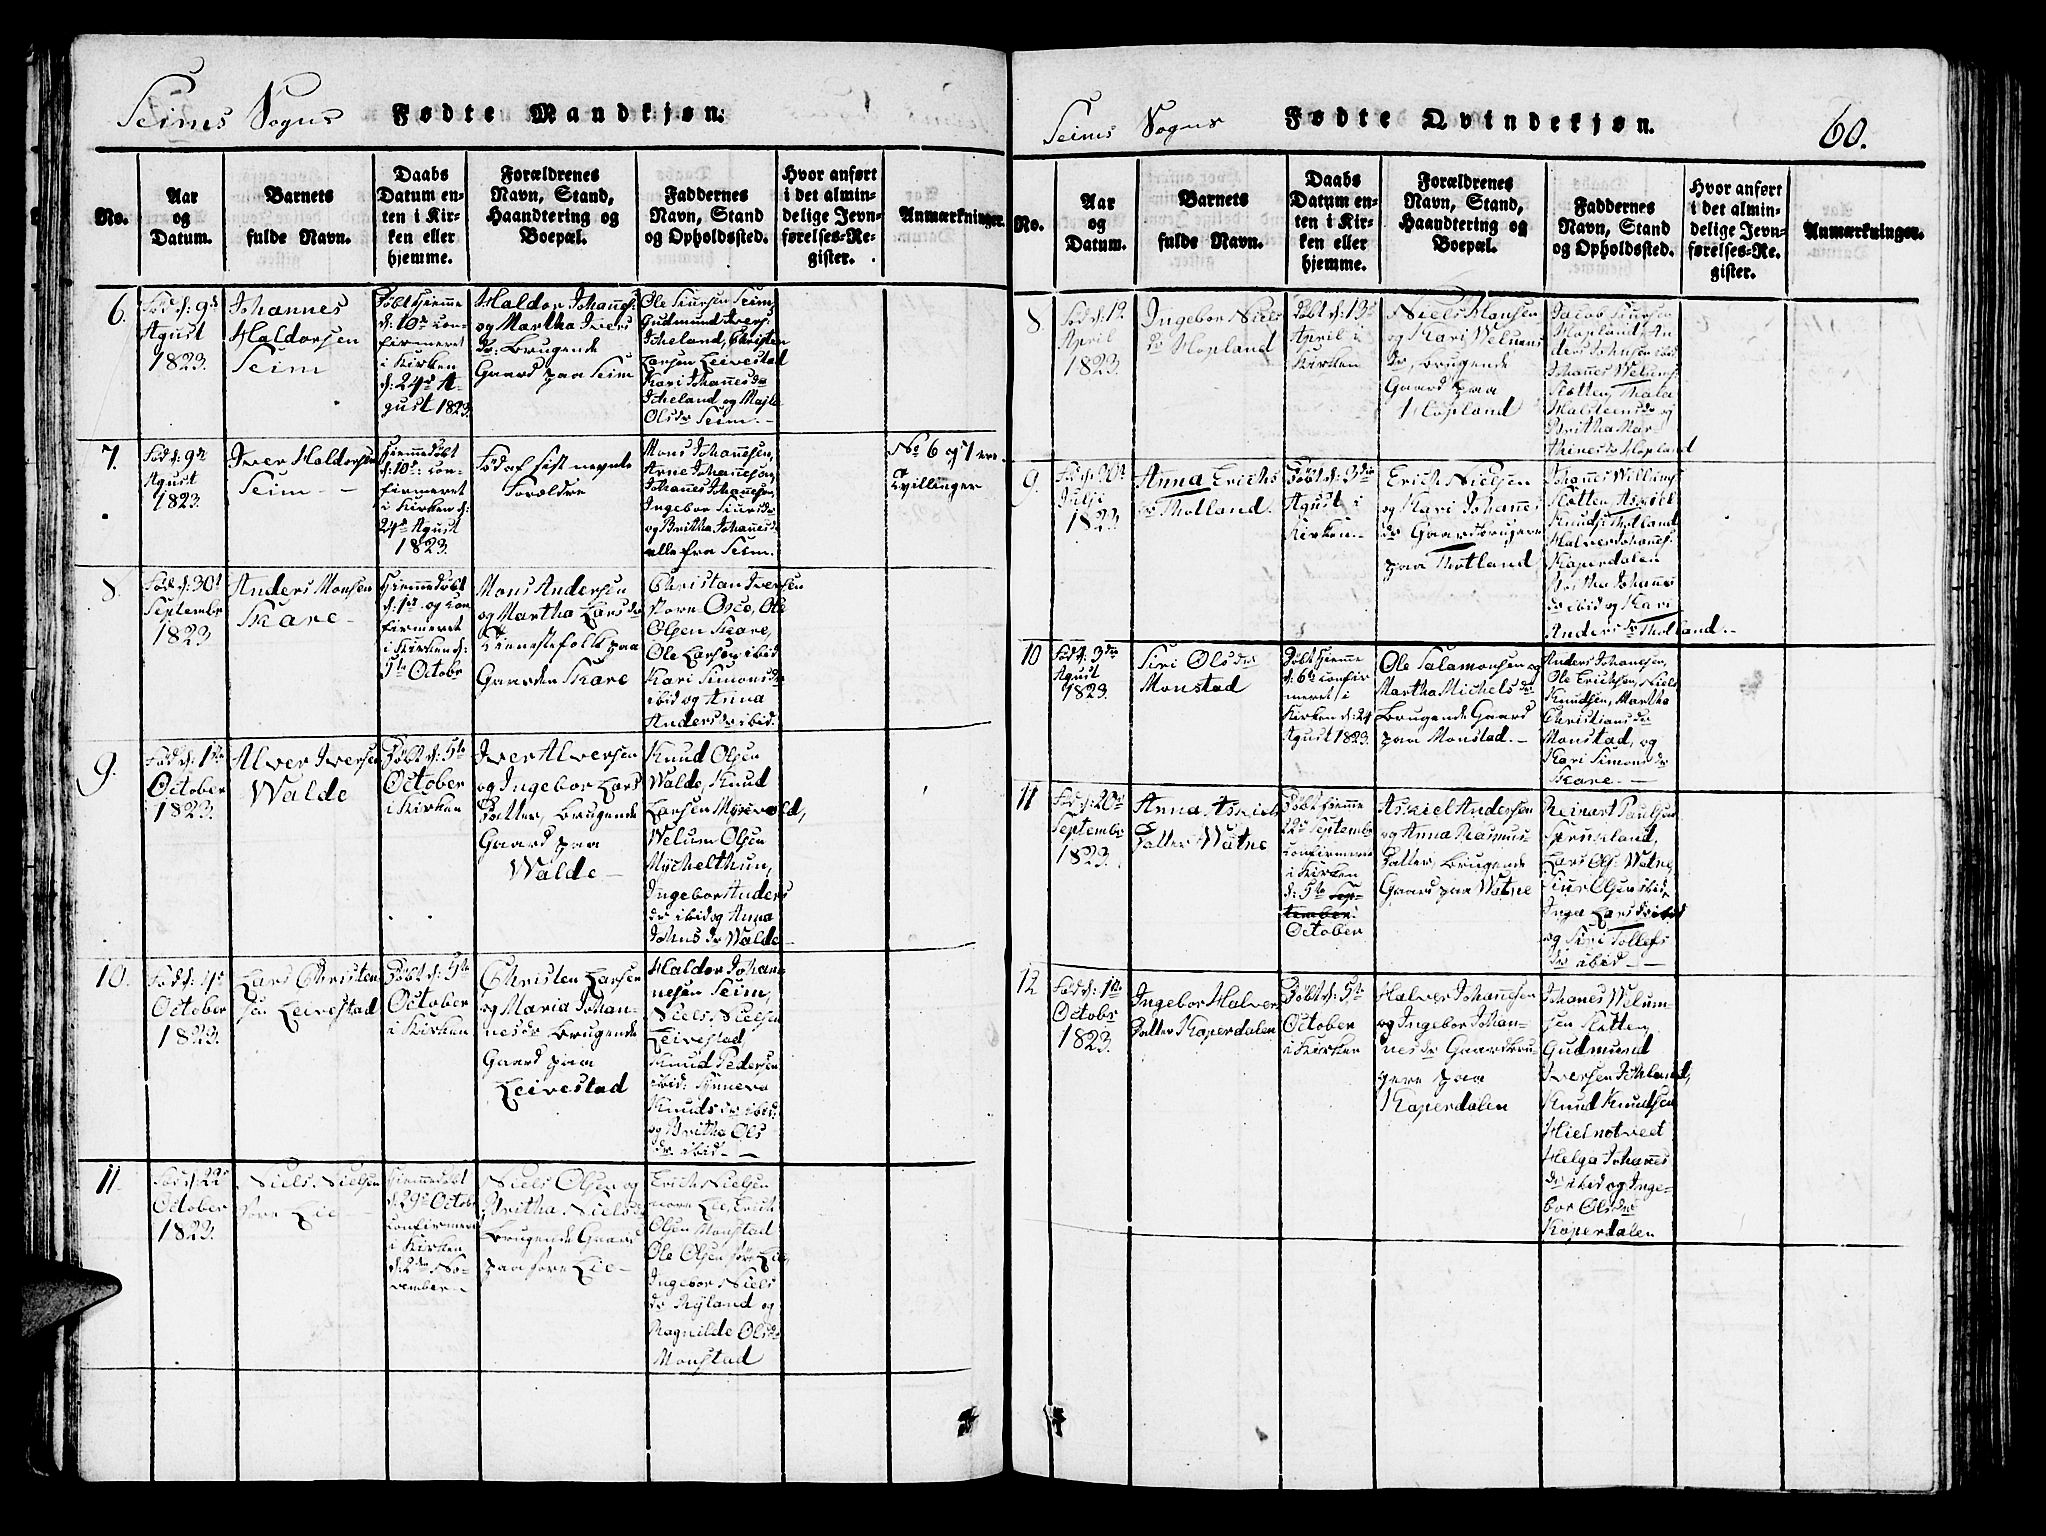 Seims Sogns Fødte Mandkjøn.
No.
Aar
og
Datum.
Barnets
fulde Navn.
Daabs
Datum en-
ten i Kir-
ken eller
hjemme.
Forældrenes
Navn, Stand,
Haandtering og
Boepæl.
Faddernes
Navn, Stand
og Opholdssted.
Hvor anført
i det almin-
delige Jevn-
førelses-Re-
gister.
Anmærkninger.
6.
Fød d: 9de
Agust
1823.
Johannes
Haldorsen
Seim
Døbt hiemme
d: 10de con-
firmeret
i Kirken
d: 24de A-
gust 1823.
Haldor Johans:
og Martha Ivers
dr. Brugende
Gaard paa Seim
Ole Siursen Seim,
Gudmund Ivers:
Larsen Leivestad
Kari Johanes dr
og MaJta
Ols dr Seim.
7.
Fød d: 9de
Agust
1823
Iver Haldorsen
Seim
Hiemmedøbt
d: 10de con-
firmeret
i Kirken d:
24de Agust
1823.
Fød af sist nevnte
Forældre
Mons Johannesen,
Arne Johannesen,
Johanes Johannesen,
Ingebor Siursdr
og Britha Johanesdr
alle fra Seim.
No 6 og 7 ere
Tvillinger
8.
Fød d: 30te
Septembr
1823
Anders Monsen
Skare
Hiemmedøbt
d: 1ste og con-
firmeret
i Kirken d:
5te Octobr
Mons Andersen
og Martha Larsdr
Tienestefolk paa
Gaarden Skare
Christian Iversen
store Osse, Ole
Olsen Skare,
Ole Larsen ibid
Kari Simonsdr
ibid og Anna
Andersdr ibid.
9.
Fød d: 1ste
October
1823.
Alver Iversen
Walde
Døbt d: 5te
October
i Kirken
Iver Alversen
og Ingebor Lars
Datter, Brugende
Gaard paa
Walde
Knud Olsen
Walde, Knud
Larsen Myrevold,
Welum Olsen
Mychelthun,
Ingebor Anders
dr ibid og Anna
Johns dr Walde
10.
Fød d: 4de
October
1823.
Lars Christen
sen Leivestad
Døbt d: 5te
October
i Kirken
Christen Larsen
og Maria Johan-
nesdr Brugende
Gaard paa
Leivestad
Haldor Johan-
nesen Seim,
Niels Nielsen
Leivestad
Knud Pedersen
ibid: Synneva
Knudsdr ibid:
og Britha Ols
dr ibid
11.
Fød d: 22de
October
1823.
Niels Nielsen
søre Lie
Hiemmedøbt
d: 29de Octobr
confirmeret
i Kirken
d: 2den No-
vember
Niels Olsen og
Britha Nielsdr
Brugende Gaard
paa søre Lie
Erich Nielsen
nore Lie, Erich
Olsen Monstad
Ole Olsen søre Lie,
Ingebor Niels
dr Ryland og
Ragnilde Olsdr
Monstad
Seims Sogns Fødte Qvindekjøn.
60.
No.
Aar
og
Datum.
Barnets
fulde Navn.
Daabs
Datum en-
ten i Kir-
ken eller
hjemme.
Forældrenes
Navn, Stand,
Haandtering og
Boepæl.
Faddernes
Navn, Stand
og Opholdssted.
Hvor anført
i det almin-
delige Jevn-
førelses-Re-
gister.
Anmærkninger.
8
Fød d: 1te
April
1823.
Ingebor Niels
dr Hopland
Døbt d: 13de
April i
Kirken
Niels Hansen
og Kari Welums
dr, Brugende
Gaard paa
Hopland
Jacob Siursen
Hopland, An-
ders Johnsen ibid
Johanes Welums:
Slotten,
Halsteinsdr og
Britha Mar-
thinesdr Hopland
9.
Fød d: 30te
Julji
1823
Anna Erichs
dr Thotland.
Døbt d: 3die
Agust i
Kirken.
Erich Nielsen
og Kari Johannes
dr Gaardbrugere
paa Thotland
Johanes Willums:
Slotten, Askiel
Knuds: Thotland
Halver Johanes:
Koperdalen
Britha Johannes
dr ibid og Kari
Anders dr Thotland.
10
Fød d: 3die
Agust
1823.
Siri Olsdr
Monstad
Døbt hiemme
d: 6te confir
meret i
Kirken d: 24
Agust 1823.
Ole Salamonsen og
Martha Michelsdr
Brugende Gaard
paa Monstad.
Anders Johanesen,
Ole Ericksen, Niels
Knudsen, Martha
Christiansdr
Monstad, og
Kari Simonsdr
Skare
11
Fød d: 20de
Septembr
1823.
Anna Askiels
Datter Watne
Døbt hiemme
22de Septembr
confirmere
i Kirken
d: 5te Sep-
tember:
October
Askiel Andersen
og Anna Rasmus
Datter, Brugende
Gaard paa Watne
Reinert Paulsen
Spruseland,
Lars Ols: Watne,
Siur Olsen ibid,
Inga Larsdr ibid
og Siri Tollefs
dr ibid
12
Fød d: 1ste
Octobr
1823.
Ingebor Halvers
Datter Koperdalen
Døbt d: 5te
October
i Kirken
Halver Johannesen
og Ingebor Johan-
nesdr Gaardbru-
gere paa
Koperdalen
Johanes Welum-
sen Slotten,
Gudmund
Iversen Ichland,
Knud Knudsen
Hielmotveet
Helga Johannes
dr ibid og Inge-
bor Olsdr
Koperdalen